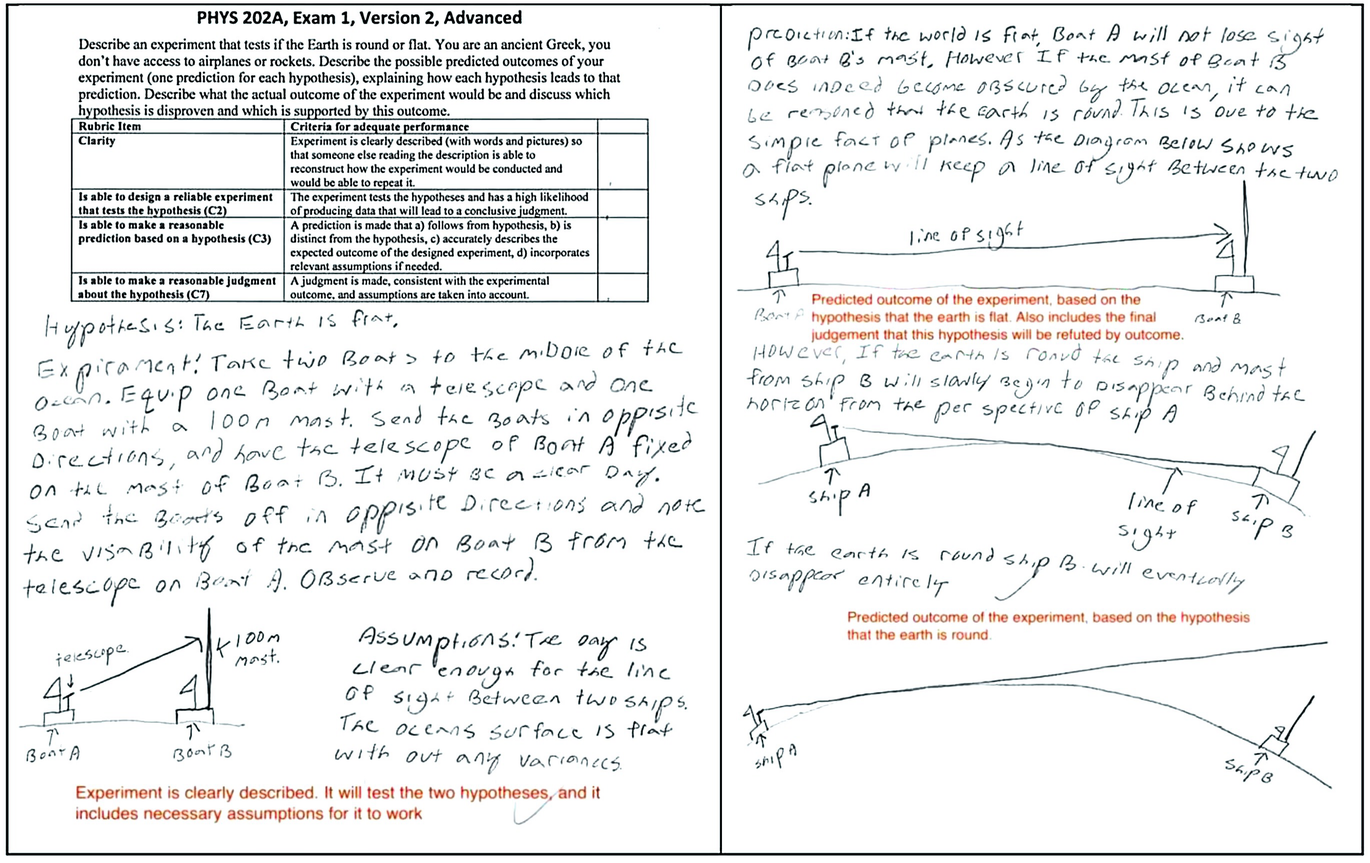 PHYS 202A, Exam 1, Version 2, Advanced
Describe an experiment that tests if the Earth is round or flat. You are an ancient Greek, you
don't have access to airplanes or rockets. Describe the possible predicted outcomes of your
experiment (one prediction for each hypothesis), explaining how each hypothesis leads to that
prediction. Describe what the actual outcome of the experiment would be and discuss which
hypothesis is disproven and which is supported by this outcome.
Rubric Item Criteria for adequate performance
Clarity Experiment is clearly described (with words and pictures) so
that someone else reading the description is able to
reconstruct how the experiment would be conducted and
would be able to repeat it.
Is able to design a reliable experiment The experiment tests the hypotheses and has a high likelihood
that tests the hypothesis (C2) of producing data that will lead to a conclusive judgment.
Is able to make a reasonable A prediction is made that a) follows from hypothesis, b) is
prediction based on a hypothesis (C3) distinct from the hypothesis, c) accurately describes the
expected outcome of the designed experiment, d) incorporates
relevant assumptions if needed.
Is able to make a reasonable judgment A judgment is made, consistent with the experimental
about the hypothesis (C7) outcome, and assumptions are taken into account.
Hypothesis: The Earth is flat.
Expirament: Take two Boats to the middle of the
ocean. Equip one Boat with a telescope and one
Boat with a 100m mast. Send the Boats in oppisite
Directions, and have the telescope of Boat A fixed
on the mast of Boat B. It must be a clear Day.
Send the Boats off in oppisite Directions and note
the visability of the mast on Boat B from the
telescope on Boat A. Observe and record.
telescope
100m
mast.
Boat A
Boat B
Assumptions: The day is
clear enough for the line
of sight Between two ships.
The oceans surface is flat
with out any variances.
Experiment is clearly described. It will test the two hypotheses, and it
includes necessary assumptions for it to work
prediction: If the world is flat, Boat A will not lose sight
of Boat B's mast, However If the mast of Boat B
Does indeed become obscured by the ocean, it can
be reasoned that the earth is round. This is due to the
simple fact of planes. As the Diagram Below shows
a flat plane will keep a line of sight Between the two
ships.
line of sight
Boat A
Boat B
Predicted outcome of the experiment, based on the
hypothesis that the earth is flat. Also includes the final
judgement that this hypothesis will be refuted by outcome.
However, If the earth is round the ship and mast
from ship B will slowly Begin to Disappear Behind the
horizon from the perspective of ship A
ship A
line of
sight
ship B
If the earth is round ship B will eventually
Disappear entirely
Predicted outcome of the experiment, based on the hypothesis
that the earth is round.
ship A
ship B